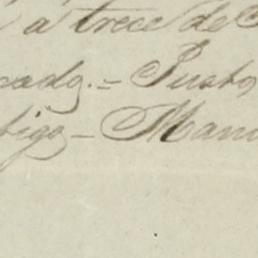 á trece de
cado.= Justo
tigo - Manu